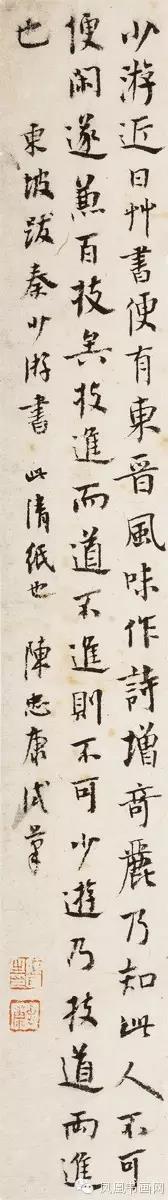 少游近日艸書便有東晋風味作詩增奇麗乃知此人不可
便閑遂兼百技矣技進而道不進則不可少遊乃技道兩進
也 東坡跋秦少游書 此清紙也 陳忠康試筆
凤凰书画网